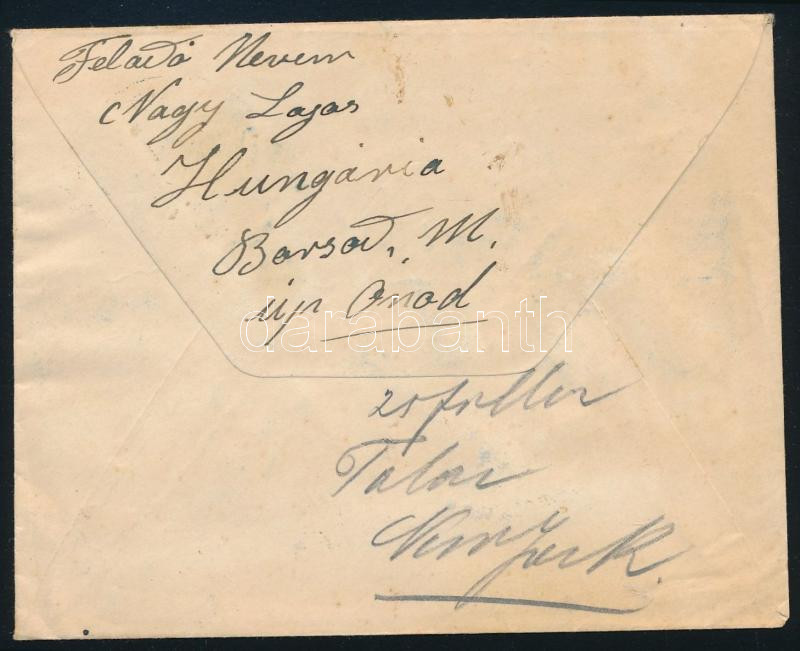 Feladó Nevem
Nagy Lajos
Hungária
Borsod, M.
up Ónod
darabanth
25 filler
New York.